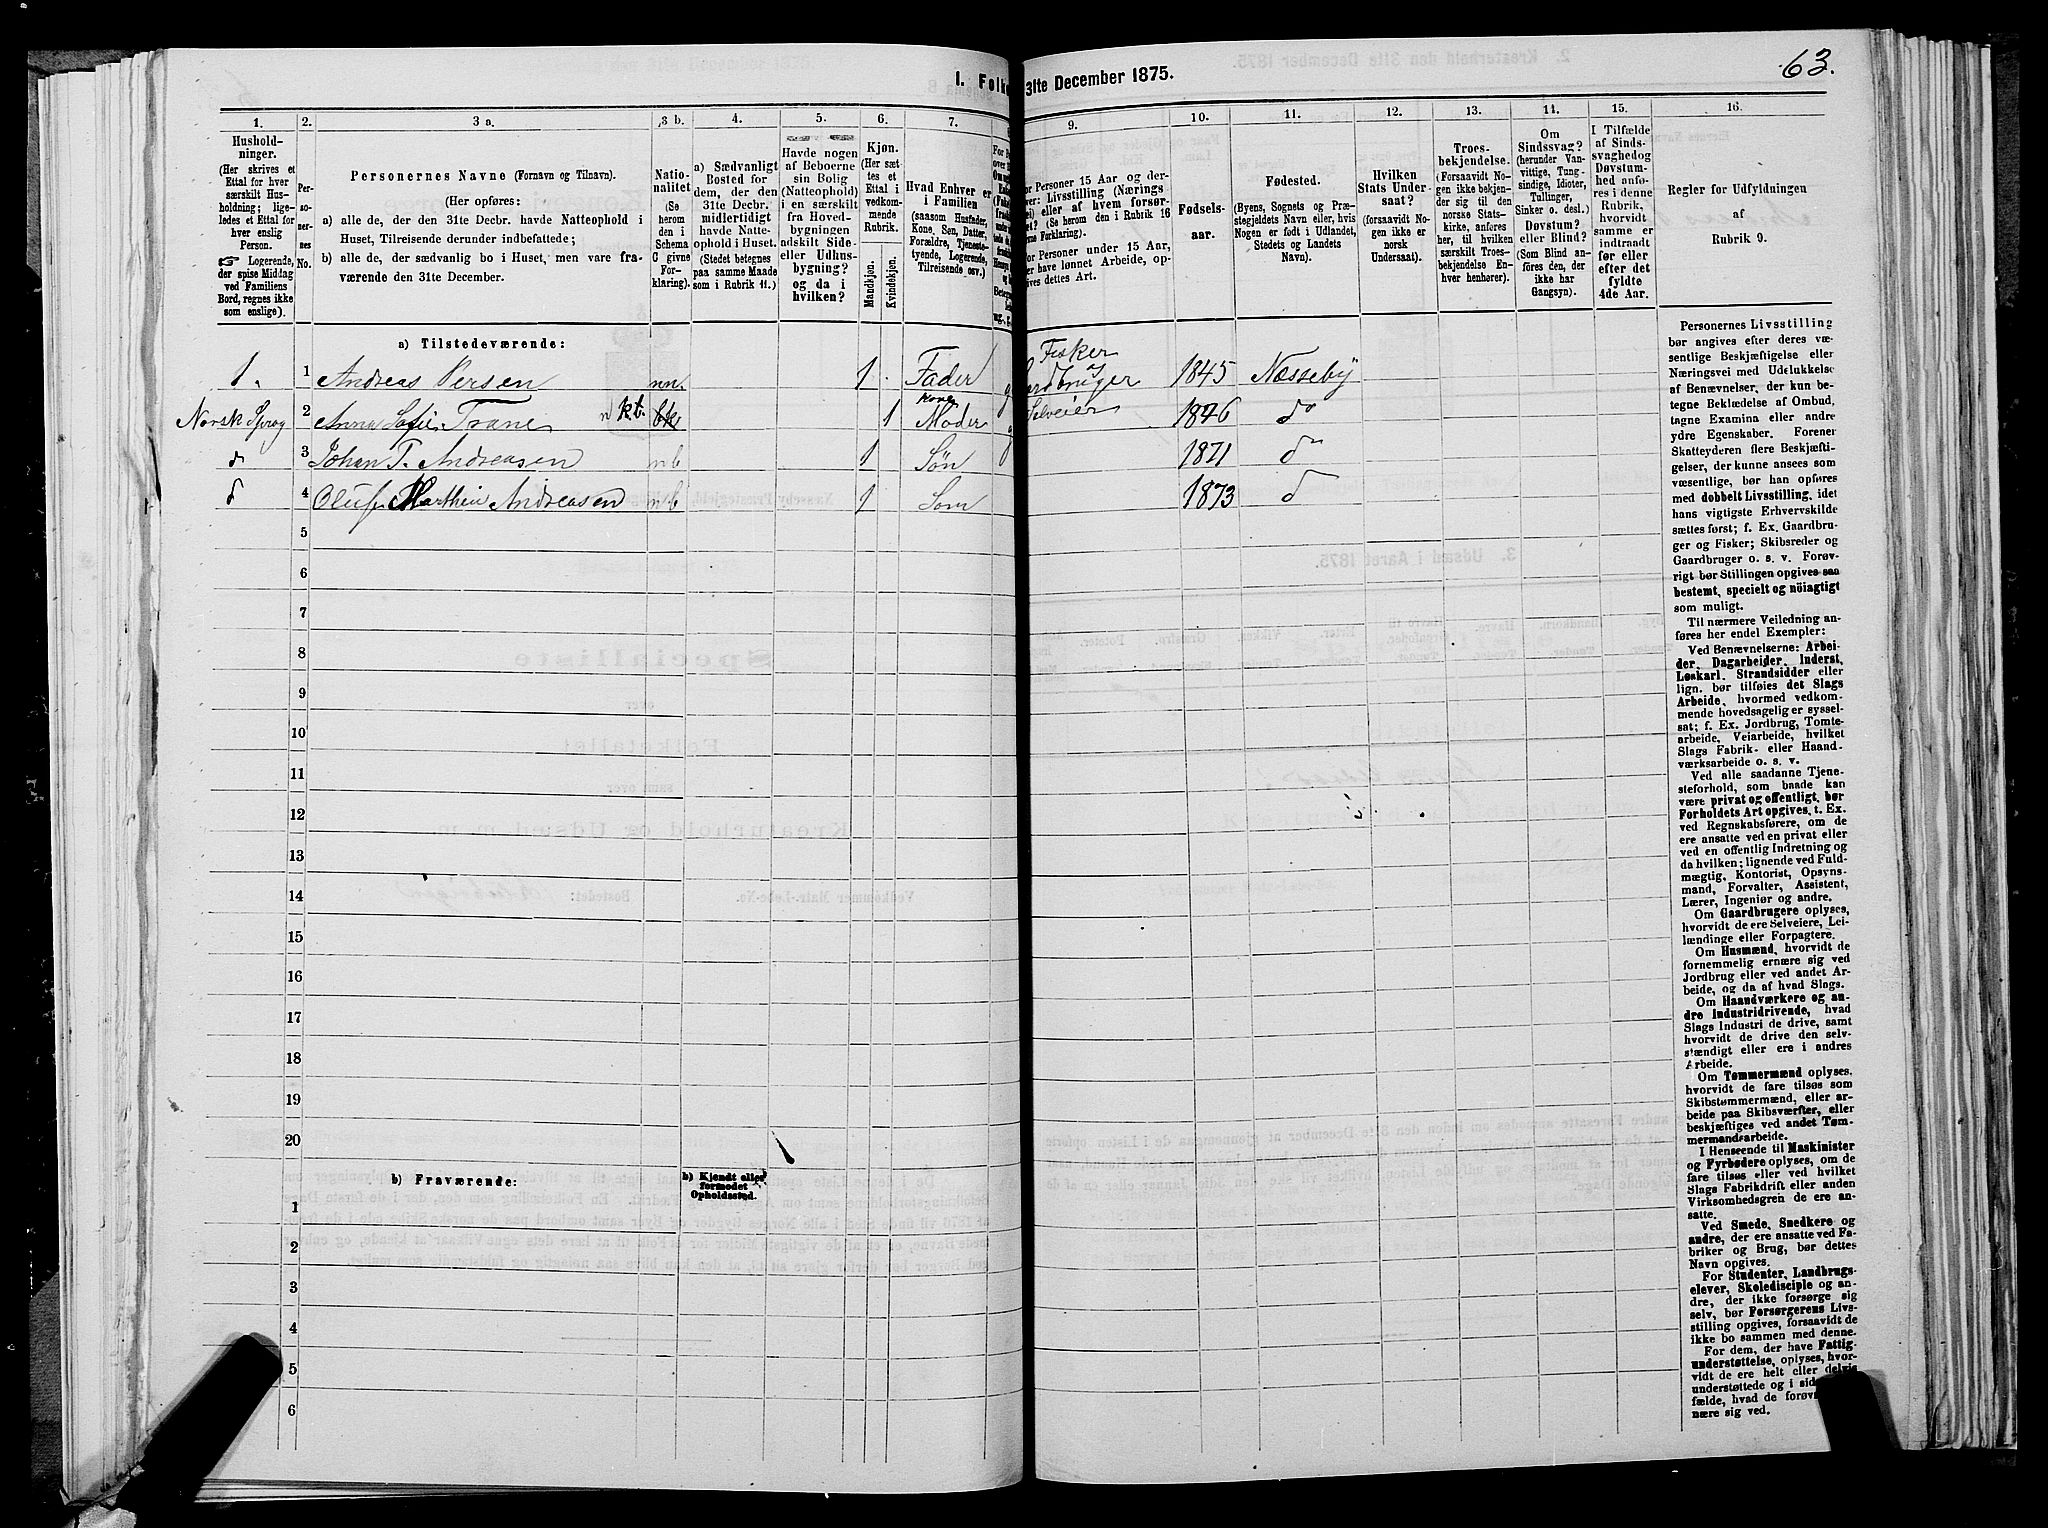 63.
1. Folke 31te December 1875.
1. 2. 3 a. 3 b. 4. 5. 6. 7. 9. 10. 11. 12. 13. 14. 15. 16.
Hushold-
ninger.
(Her skrives et
Ettal for hver
særskilt Hus-
holdning; lige-
ledes et Ettal for
hver enslig
Person.
☞ Logerende,
der spise Middag
ved Familiens
Bord, regnes ikke
som enslige).
Per-
so-
ner-
nes
No.
Personernes Navne (Fornavn og Tilnavn).
(Her opføres:
a) alle de, der den 31te Decbr. havde Natteophold i
Huset, Tilreisende derunder indbefattede;
b) alle de, der sædvanlig bo i Huset, men vare fra-
værende den 31te December.
Natio-
nalitet
(Se
herom
den i
Schema
C givne
For-
klaring).
a) Sædvanligt
Bosted for
dem, der den
31te Decbr.
midlertidigt
havde Natte-
ophold i Huset.
(Stedet betegnes
paa samme Maade
som i Rubrik 11.)
Havde nogen
af Beboerne
sin Bolig
(Natteophold)
i en særskilt
fra Hoved-
bygningen
adskilt Side-
eller Udhus-
bygning?
og da i
hvilken?
Kjøn.
(Her sæt-
tes et
Ettal i
vedkom-
mende
Rubrik.
Mandkjøn.
Kvindekjøn.
Hvad Enhver er
i Familien
(saasom Husfader,
Kone, Søn, Datter,
Forældre, Tjeneste-
tyende, Logerende,
Tilreisende osv.)
or Personer 15 Aar og der-
ver: Livsstilling (Nærings
ei) eller af hvem forsør-
get? (Se herom den i Rubrik 16
erne Forklaring).
or Personer under 15 Aar,
er have lønnet Arbeide, op-
gives dettes Art.
Fødsels-
aar.
Fødested.
(Byens, Sognets og Præ-
stegjeldets Navn eller, hvis
Nogen er født i Udlandet,
Stedets og Landets
Navn).
Hvilken
Stats Under-
saat?
(forsaavidt No-
gen ikke er
norsk
Undersaat).
Troes-
bekjendelse.
(Forsaavidt No-
gen ikke bekjen-
der sig til den
norske Stats-
kirke, anføres
her, til hvilken
særskilt Troes-
bekjendelse En-
hver henhører).
Om
Sindssvag?
(herunder Van-
vittige, Tung-
sindige, Idioter,
Tullinger,
Sinker o. desl.)
Døvstum?
eller Blind?
(Som Blind an-
føres den, der
ikke har
Gangsyn).
I Tilfælde
af Sinds-
svaghed og
Døvstum-
hed anfø-
res i denne
Rubrik,
hvorvidt
samme er
indtraadt
før eller
efter det
fyldte
4de Aar.
Regler for Udfyldningen
af
Rubrik 9.
a) Tilstedeværende:
1. 1 Andreas Persen nn. 1 Fader Fisker og Gaardbruger 1845 Næsseby
Norsk Sprog 2 Anna Sofie Trane n kb. 1 Kone Moder Selveier 1846 do
d 3 Johan T. Andreasen nb 1 Søn 1871 do
d 4 Oluf Marthin Andreasen nb 1 Søn 1873 d
5
6
7
8
9
10
11
12
13
14
15
16
17
18
19
20
b) Fraværende:
b) Kjendt eller
formodet
Opholdssted.
1
2
3
4
5
6
Personernes Livsstilling
bør angives efter deres væ-
sentlige Beskjæftigelse eller
Næringsvei med Udelukkelse
af Benævnelser, der kun be-
tegne Beklædelse af Ombud,
tagne Examina eller andre
ydre Egenskaber. Forener
Skatteyderen flere Beskjæfti-
gelser, der kunne ansees som
væsentlige, bør han opføres
med dobbelt Livsstilling, idet
hans vigtigste Erhvervskilde
sættes først; f. Ex. Gaardbru-
ger og Fisker; Skibsreder og
Gaardbruger o. s. v. Forøv-
rigt bør Stillingen opgives saa
bestemt, specielt og nöiagtigt
som muligt.
Til nærmere Veiledning an-
føres her endel Exempler:
Ved Benævnelserne: Arbei-
der, Dagarbeider, Inderst,
Løskarl, Strandsidder eller
lign. bør tilføies det Slags
Arbeide, hvormed vedkom-
mende hovedsagelig er syssel-
sat; f. Ex. Jordbrug, Tomte-
arbeide, Veiarbeide, hvilket
Slags Fabrik- eller Haand-
værksarbeide o. s. v.
Ved alle saadanne Tjene-
steforhold, som baade kan
være privat og offentligt, bør
Forholdets Art opgives, t. Ex.
ved Regnskabsførere, om de
ere ansatte ved en privat eller
ved en offentlig Indretning og
da hvilken; lignende ved Fuld-
mægtig, Kontorist, Opsyns-
mand, Forvalter, Assistent,
Lærer, Ingeniør og andre.
Om Gaardbrugere oplyses,
hvorvidt de ere Selveiere, Lei-
lændinge eller Forpagtere.
Om Husmænd, hvorvidt de
fornemmelig ernære sig ved
Jordbrug eller ved andet Ar-
beide, og da af hvad Slags.
Om Haandværkere og an-
dre Industridrivende, hvad
Slags Industri de drive, samt
hvorvidt de drive den selv-
stændigt eller ere i andres
Arbeide.
Om Tømmermænd oplyses,
hvorvidt de fare tilsøs som
Skibstømmermænd, eller ar-
beide paa Skibsværfter, eller
beskjæftiges ved andet Tøm-
mermandsarbeide.
I Henseende til Maskinister
og Fyrbødere oplyses, om de
fare tilsøs eller ved hvilket
Slags Fabrikdrift eller anden
Virksomhedsgren de ere an-
satte.
Ved Smede, Snedkere og
andre, der ere ansatte ved Fa-
briker og Brug, bør dettes
Navn opgives.
For Studenter, Landbrugs-
elever, Skoledisciple og an-
dre, der ikke forsørge sig
selv, bør Forsørgerens Livs-
stilling opgives, forsaavidt de
ikke bo sammen med denne.
For dem, der have Fattig-
understøttelse, oplyses, hvor-
vidt de ere helt eller delvis
understøttede og i sid
fælde, hvad de forøv
nære sig ved.